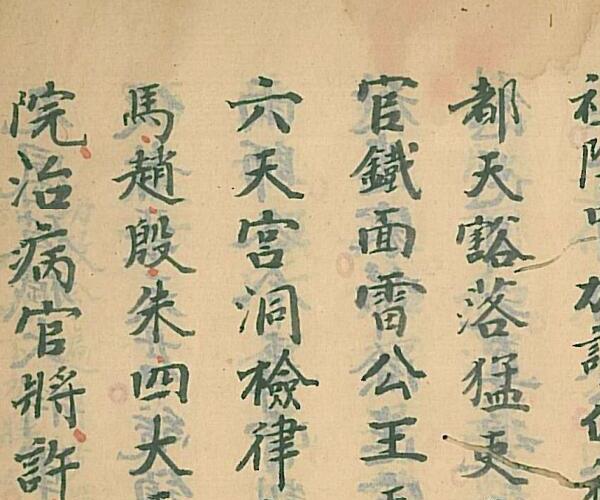 都天豁落猛吏
官鐵面雷公王
六天宮洞檢律
馬趙殷朱四大
院治病官將許